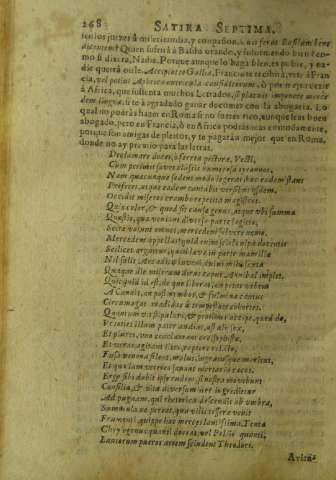 268 SATIRA SEPTIMA.
tos los juezes à misericordia, y compassion.
dicentem? Quien sufrirà à Basilo orando, y informando bien? co-
mo si dixera, Nadie. Porque aunque lo haga bien, es pobre, y na-
die querrà oirle. Accipiat te Gallia, Francia te reciba, vete à Fran-
cia, vel potius
à Africa, que sustenta muchos Letrados, si placuit
dem linguæ, si te à agradado ganar de comer con la abogacia. Lo
qual no podràs hazer en Roma si no fueres rico, aunque seas buen
abogado, pero en Francia, ò en Africa podràs mas comodamente,
porque son amigas de pleitos, y te pagaràn mejor que en Roma,
donde no ay premio para las letras.
Declamare doces, o ferrea pectora, Vecti,
Cum perimit sævos classis numerosa tyrannos,
Nam quæcunque sedens modo legerat, hæc eadem stans
Proferet, atque eadem cantabit versibus isdem.
Occidit miseros crambe repetita magistros.
Quis color, & quod sit causæ genus, atque ubi summa
Quæstio, quæ veniant diversa parte sagittæ,
Scire volunt omnes, mercedem solvere nemo.
Mercedem appellas? quid enim scio? culpa docentis
Scilicet arguitur, quod læva in parte mamillæ
Nil salit Arcadico iuveni, cuius mihi sexta
Quaque die miserum dirus caput Annibal implet,
Quicquid id est, de quo deliberat, an petat urbem
A Cannis, an post nimbos, & fulmina cautus
Circumagat madidas à tempestate cohortes.
Quantum vis stipulare, & protinus accipe, quod do,
Ut toties illum pater audiat, ast alij sex,
Et plures, uno conclamant ore sophistæ,
Et veras agitant lites, raptore relicto,
Fusa venena silent, malus, ingratusque maritus,
Et quæ iam veteres sanant mortaria cæcos.
Ergo sibi dabit ipse rudem, si nostra movebunt
Consilia, & vitæ diversum iter ingredietur
Ad pugnam, qui rhetorica descendit ab umbra,
Summula ne pereat, qua vilis tessera venit
Frumenti, quippe hæc merces lautissima. Tenta
Chrysogonus quanti doceat, vel Pollio quanti
Lautorum pueros artem scindens Theodori.